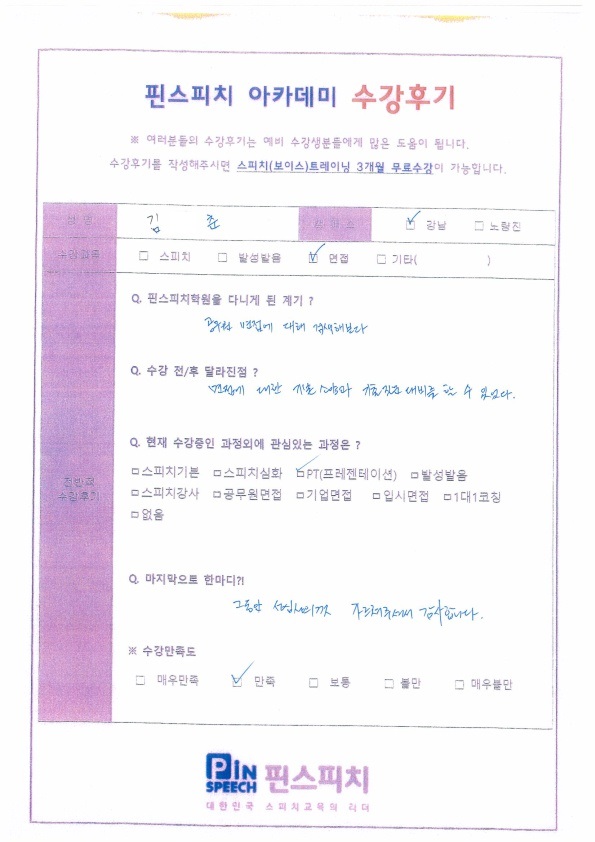 핀스피치 아카데미 수강후기
※ 여러분들의 수강후기는 예비 수강생분들에게 많은 도움이 됩니다.
수강후기를 작성해주시면 스피치(보이스)트레이닝 3개월 무료수강이 가능입니다.
성 명 김 준 캠퍼스 ☑ 강남 □ 노량진
수강과목 □ 스피치 □ 발성발음 ☑ 면접 □ 기타( )
Q. 핀스피치학원을 다니게 된 계기 ?
공무원 면접에 대해 검색해보다
Q. 수강 전/후 달라진점 ?
면접에 대한 대비를 할 수 있었다.
Q. 현재 수강중인 과정외에 관심있는 과정은 ?
□스피치기본 □스피치심화 ☑PT(프레젠테이션) □발성발음
전반적
수강후기
□스피치강사 □공무원면접 □기업면접 □입시면접 □1대1코칭
□없음
Q. 마지막으로 한마디?!
그동안 가르쳐주셔서 감사합니다.
※ 수강만족도
□ 매우만족 ☑ 만족 □ 보통 □ 불만 □ 매우불만
PIN SPEECH 핀스피치
대한민국 스피치교육의 리더